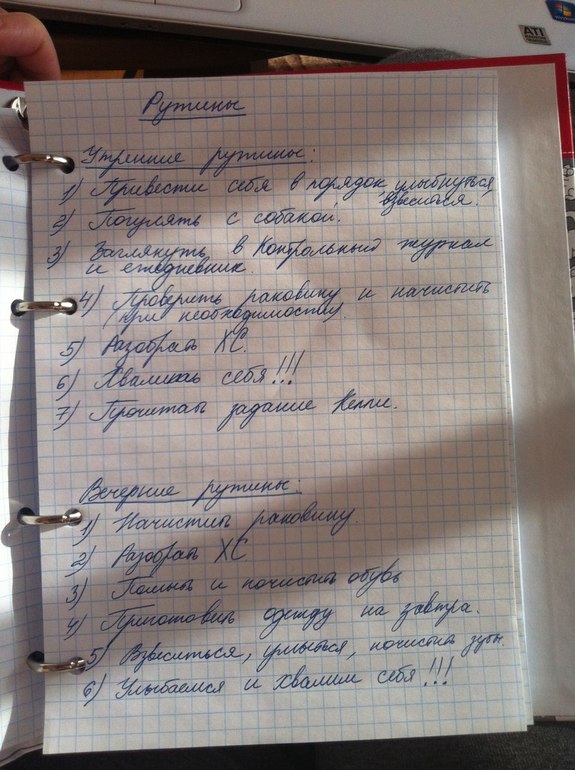 ATI
Windows 7
Рутины
Утренние рутины:
1) Привести себя в порядок, улыбнуться,
взвеситься.
2) Погулять с собакой.
3) Заглянуть в Контрольный журнал
и ежедневник.
4) Проверить раковину и начистить
(при необходимости).
5) Разобрать ХС.
6) Хвалить себя!!!
7) Прочитать задание Келли.
Вечерние рутины:
1) Начистить раковину.
2) Разобрать ХС
3) Помыть и почистить обувь
4) Приготовить одежду на завтра.
5) Взвеситься, умыться, почистить зубы.
6) Улыбаемся и хвалим себя!!!